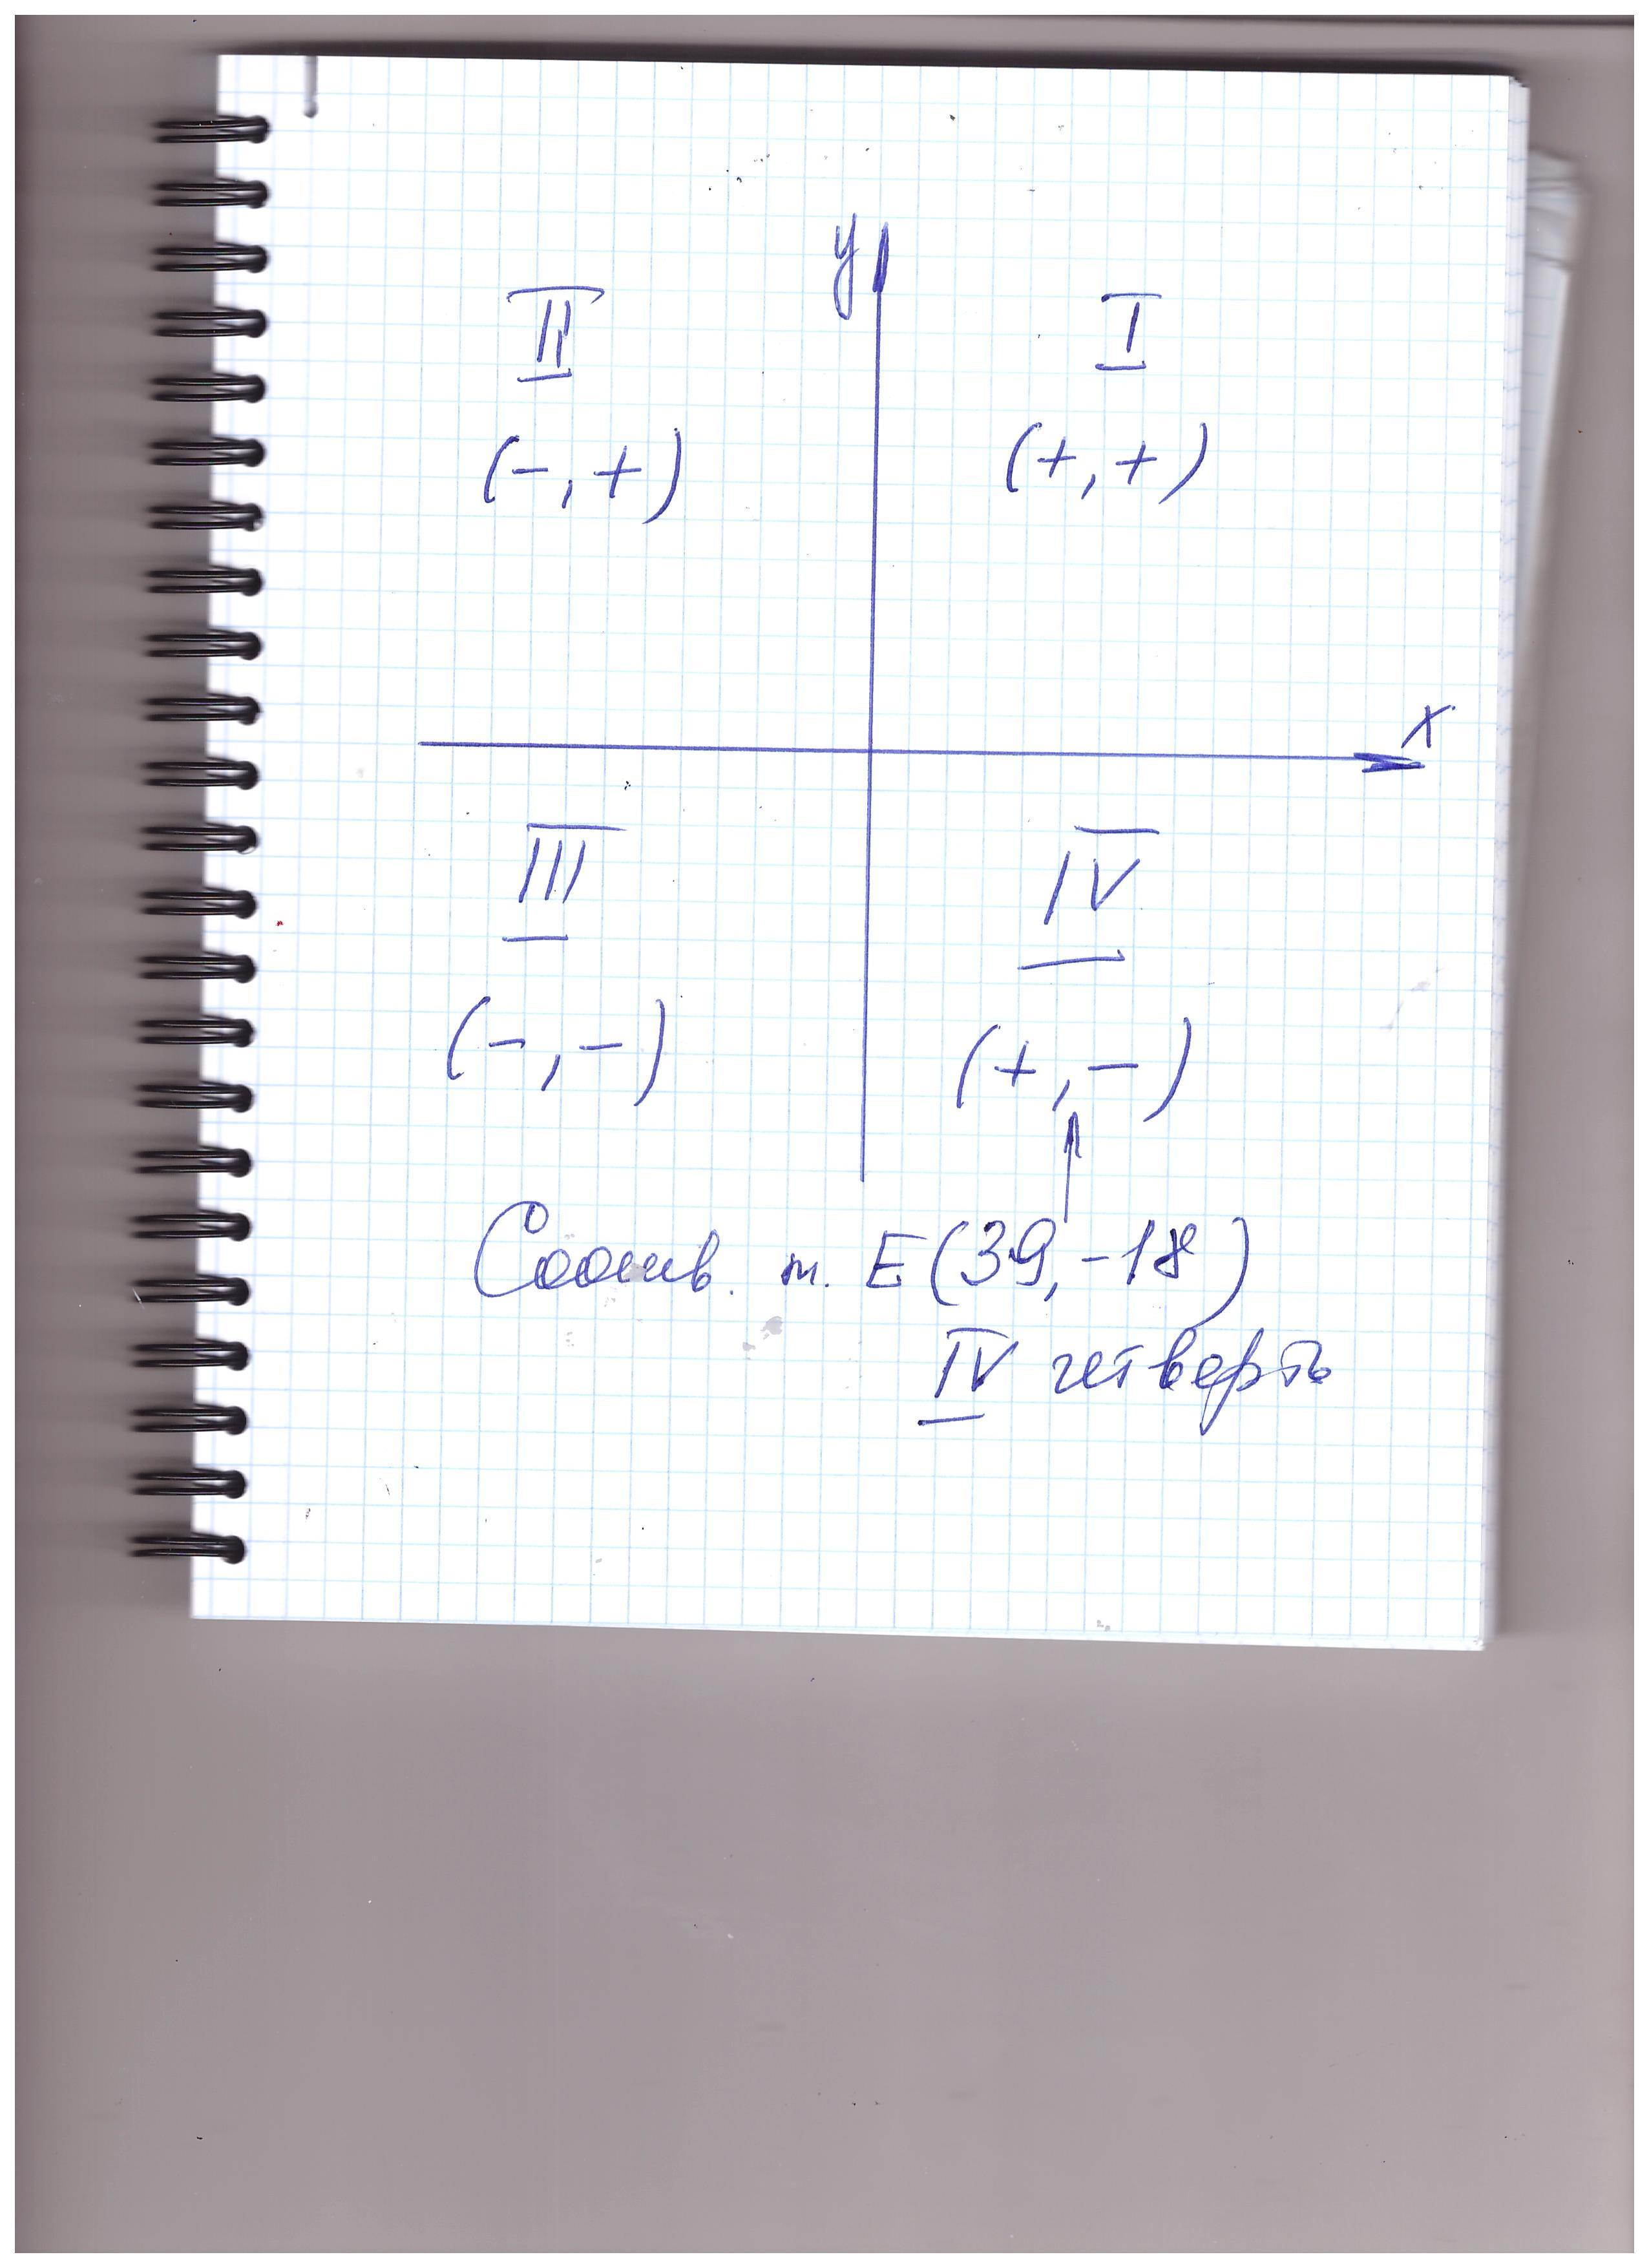 y
II I
(-,+) (+,+)
x
III IV
(-,-) (+,-)
Соотв. т. E(39,-18)
IV четверть